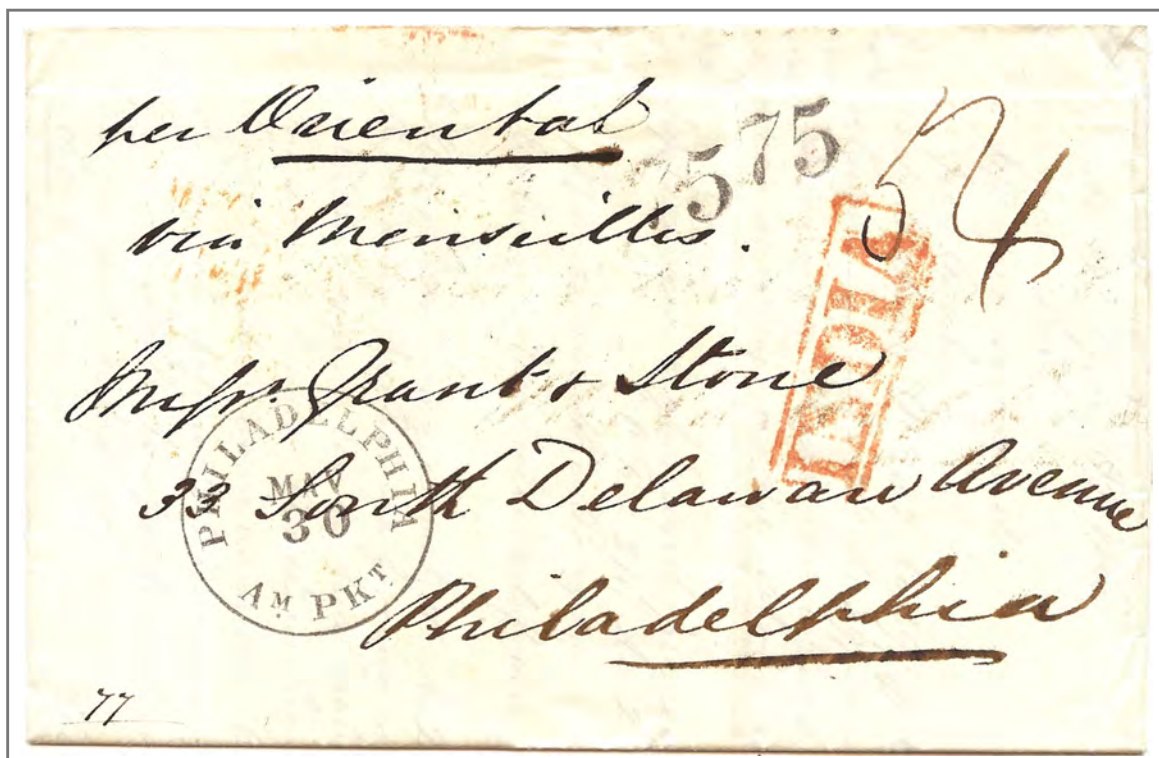 per Oriental
via Marseilles.
75 75
INDIA
Messrs. Grant & Stone
33 South Delaware Avenue
Philadelphia
PHILADELPHIA
MAY
30
AM PKT
77